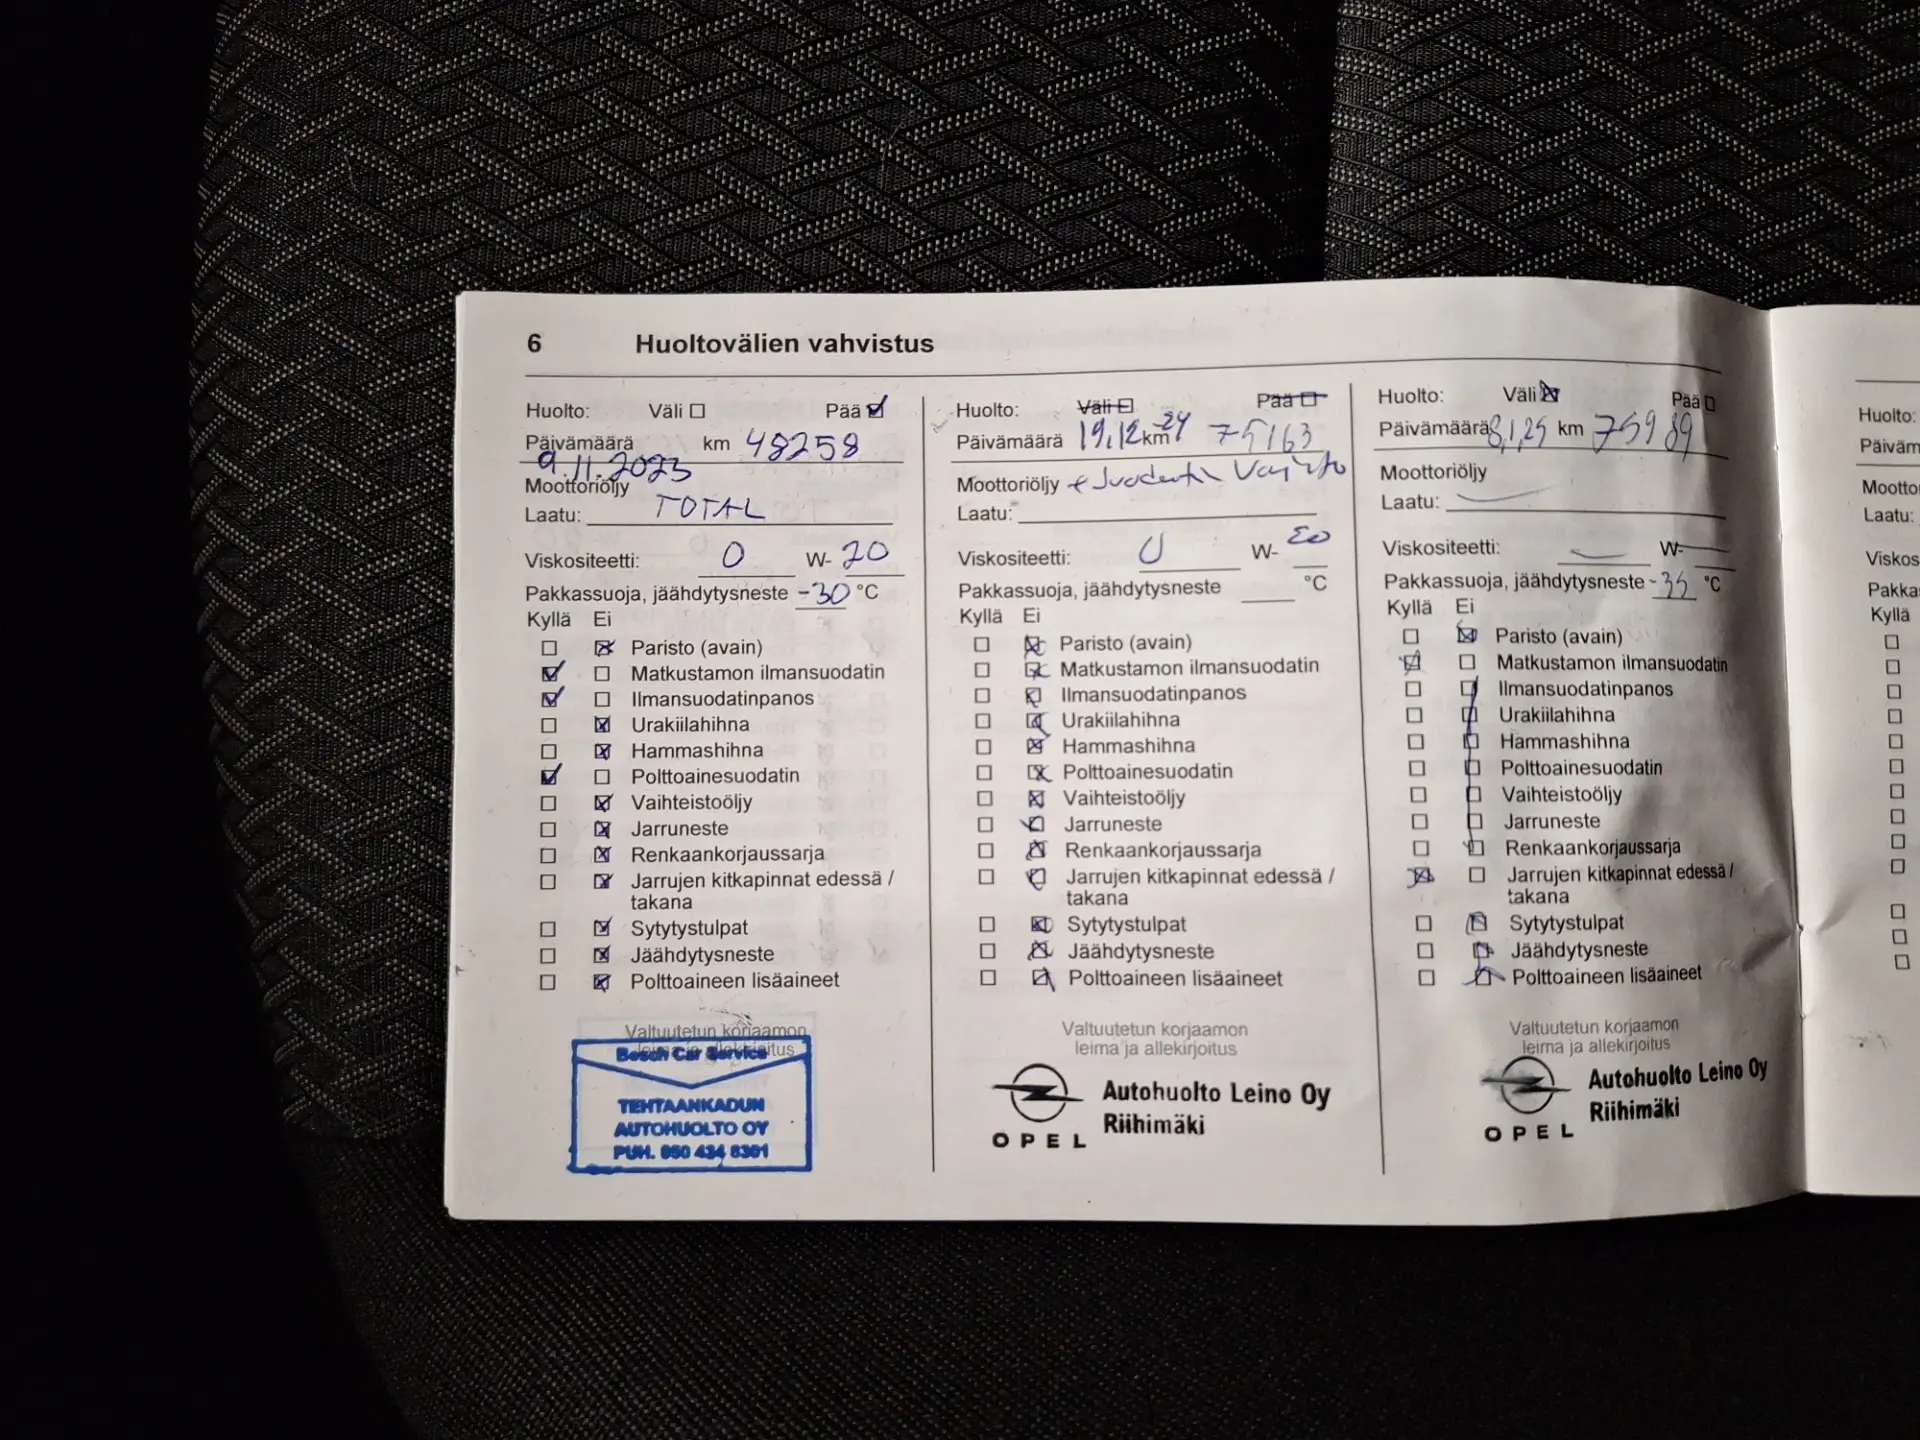 6 Huoltovälien vahvistus
Huolto: Väli Pää
Päivämäärä km 48258
9.11.2023
Moottoriöljy
Laatu: TOTAL
Viskositeetti: 0 W- 20
Pakkassuoja, jäähdytysneste -30 °C
Kyllä Ei
Paristo (avain)
Matkustamon ilmansuodatin
Ilmansuodatinpanos
Urakiilahihna
Hammashihna
Polttoainesuodatin
Vaihteistoöljy
Jarruneste
Renkaankorjaussarja
Jarrujen kitkapinnat edessä /
takana
Sytytystulpat
Jäähdytysneste
Polttoaineen lisäaineet
Valtuutetun korjaamon
leima ja allekirjoitus
Bosch Car Service
TEHTAANKADUN
AUTOHUOLTO OY
PUH. 050 434 8301
Huolto: Väli Pää
Päivämäärä 19.12 km 24 75163
Moottoriöljy
Laatu:
Viskositeetti: 0 W- 20
Pakkassuoja, jäähdytysneste °C
Kyllä Ei
Paristo (avain)
Matkustamon ilmansuodatin
Ilmansuodatinpanos
Urakiilahihna
Hammashihna
Polttoainesuodatin
Vaihteistoöljy
Jarruneste
Renkaankorjaussarja
Jarrujen kitkapinnat edessä /
takana
Sytytystulpat
Jäähdytysneste
Polttoaineen lisäaineet
Valtuutetun korjaamon
leima ja allekirjoitus
Autohuolto Leino Oy
Riihimäki
OPEL
Huolto: Väli Pää
Päivämäärä 8,1,25 km 75989
Moottoriöljy
Laatu:
Viskositeetti: W-
Pakkassuoja, jäähdytysneste -35 °C
Kyllä Ei
Paristo (avain)
Matkustamon ilmansuodatin
Ilmansuodatinpanos
Urakiilahihna
Hammashihna
Polttoainesuodatin
Vaihteistoöljy
Jarruneste
Renkaankorjaussarja
Jarrujen kitkapinnat edessä /
takana
Sytytystulpat
Jäähdytysneste
Polttoaineen lisäaineet
Valtuutetun korjaamon
leima ja allekirjoitus
Autohuolto Leino Oy
Riihimäki
OPEL
Huolto:
Päiväm
Mootto
Laatu:
Viskos
Pakka
Kyllä